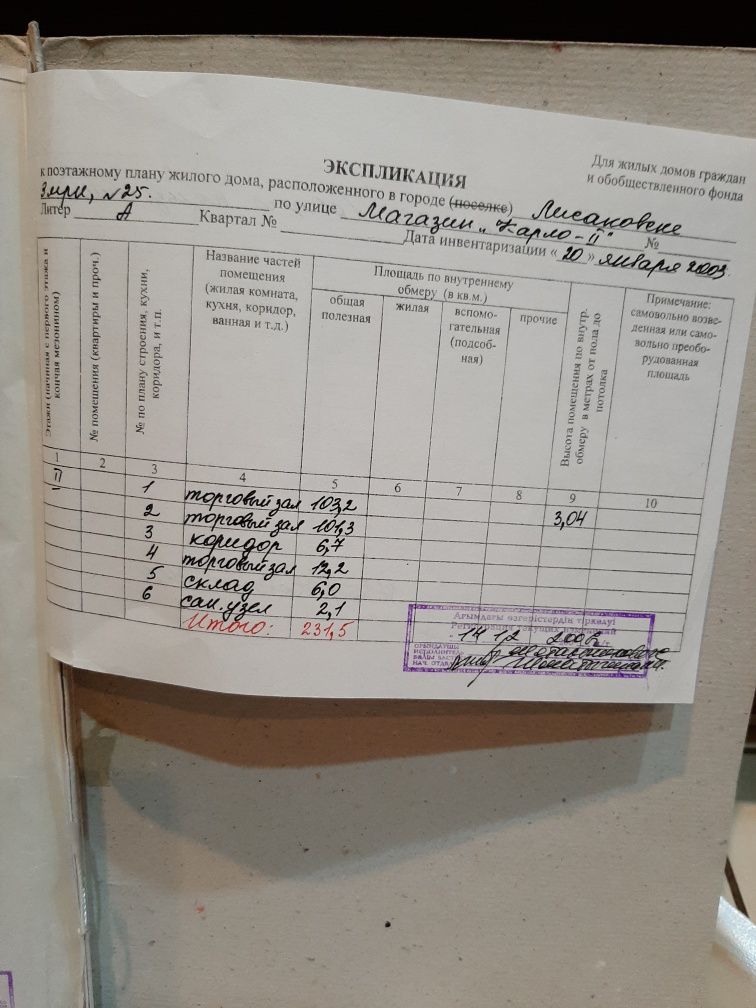 Для жилых домов граждан
и обобществленного фонда
ЭКСПЛИКАЦИЯ
к поэтажному плану жилого дома, расположенного в городе (поселке) Лисаковске
3 мрн, №25. по улице Магазин „Карло-II" №
Литер А Квартал № Дата инвентаризации « 20 » января 2003
Этажи (начиная с первого этажа и кончая мезонином)
№ помещения (квартиры и проч.)
№ по плану строения, кухни, коридора, и т.п.
Название частей
помещения
(жилая комната,
кухня, коридор,
ванная и т.д.)
Площадь по внутреннему
обмеру (в кв.м.)
общая
полезная
жилая
вспомо-
гательная
(подсоб-
ная)
прочие
Высота помещения по внутр.
обмеру в метрах от пола до
потолка
Примечание:
самовольно возве-
денная или само-
вольно преобо-
рудованная
площадь
1 2 3 4 5 6 7 8 9 10
II 1 торговый зал 103,2 3,04
2 торговый зал 101,3
3 коридор 6,7
4 торговый зал 12,2
5 склад 6,0
6 сан.узел 2,1
Итого: 231,5
Ағымдағы өзгерістердің тіркелуі
Регистрация текущих
14 12
ОРЫНДАУШЫ
ИСПОЛНИТЕЛЬ
НАЧ. ОТДЕЛА